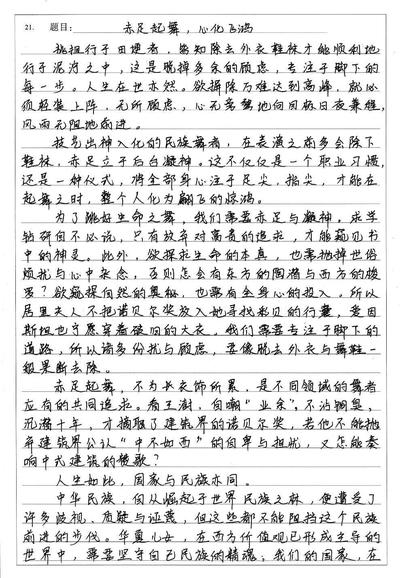 21. 题目： 赤足起舞，心化飞鸿
挑担行于田埂者，皆知除去外衣鞋袜才能顺利地
行于泥泞之中，这是脱掉多余的顾虑，专注于脚下的
每一步。人生在世亦然。欲排除万难达到高峰，就必
须轻装上阵，无所顾虑，心无旁骛地向目标日夜兼程，
风雨无阻地前进。
技艺出神入化的民族舞者，在表演之前多会除下
鞋袜，赤足立于后台凝神。这不仅仅是一个职业习惯，
还是一种仪式，将全部身心注于足尖、指尖，才能在
起舞之时，整个人化为翩飞的惊鸿。
为了跳好生命之舞，我们需要赤足与凝神。求学
钻研自不必说，只有放弃对富贵的追求，才能窥见书
中的神灵。此外，欲探求生命的本真，也需抛掉世俗
烦扰与心中杂念，否则怎会有东方的陶潜与西方的梭
罗？欲窥探自然的奥秘，也需有全身心的投入。所以
居里夫人不把诺贝尔奖放入她寻找彩贝的行囊，爱因
斯坦也宁愿穿着破旧的大衣。我们需要专注于脚下的
道路，所以诸多纷扰与顾虑，要像脱去外衣与舞鞋一
般果断去除。
赤足起舞，不为长衣饰所累，是不同领域的舞者
应有的共同追求。看王澍，自嘲“业余”，不沾铜臭，
沉潜十年，才摘取了建筑界的诺贝尔奖，若他不能抛
弃建筑界公认“中不如西”的自卑与担忧，又怎能奏
响中式建筑的赞歌？
人生如此，国家与民族亦同。
中华民族，自从崛起于世界民族之林，便遭受了
许多歧视、质疑与诬蔑，但这些都不能阻挡这个民族
前进的步伐。华夏儿女，在西方价值观已形成主导的
世界中，需要坚守自己民族的精魂；我们的国家，在